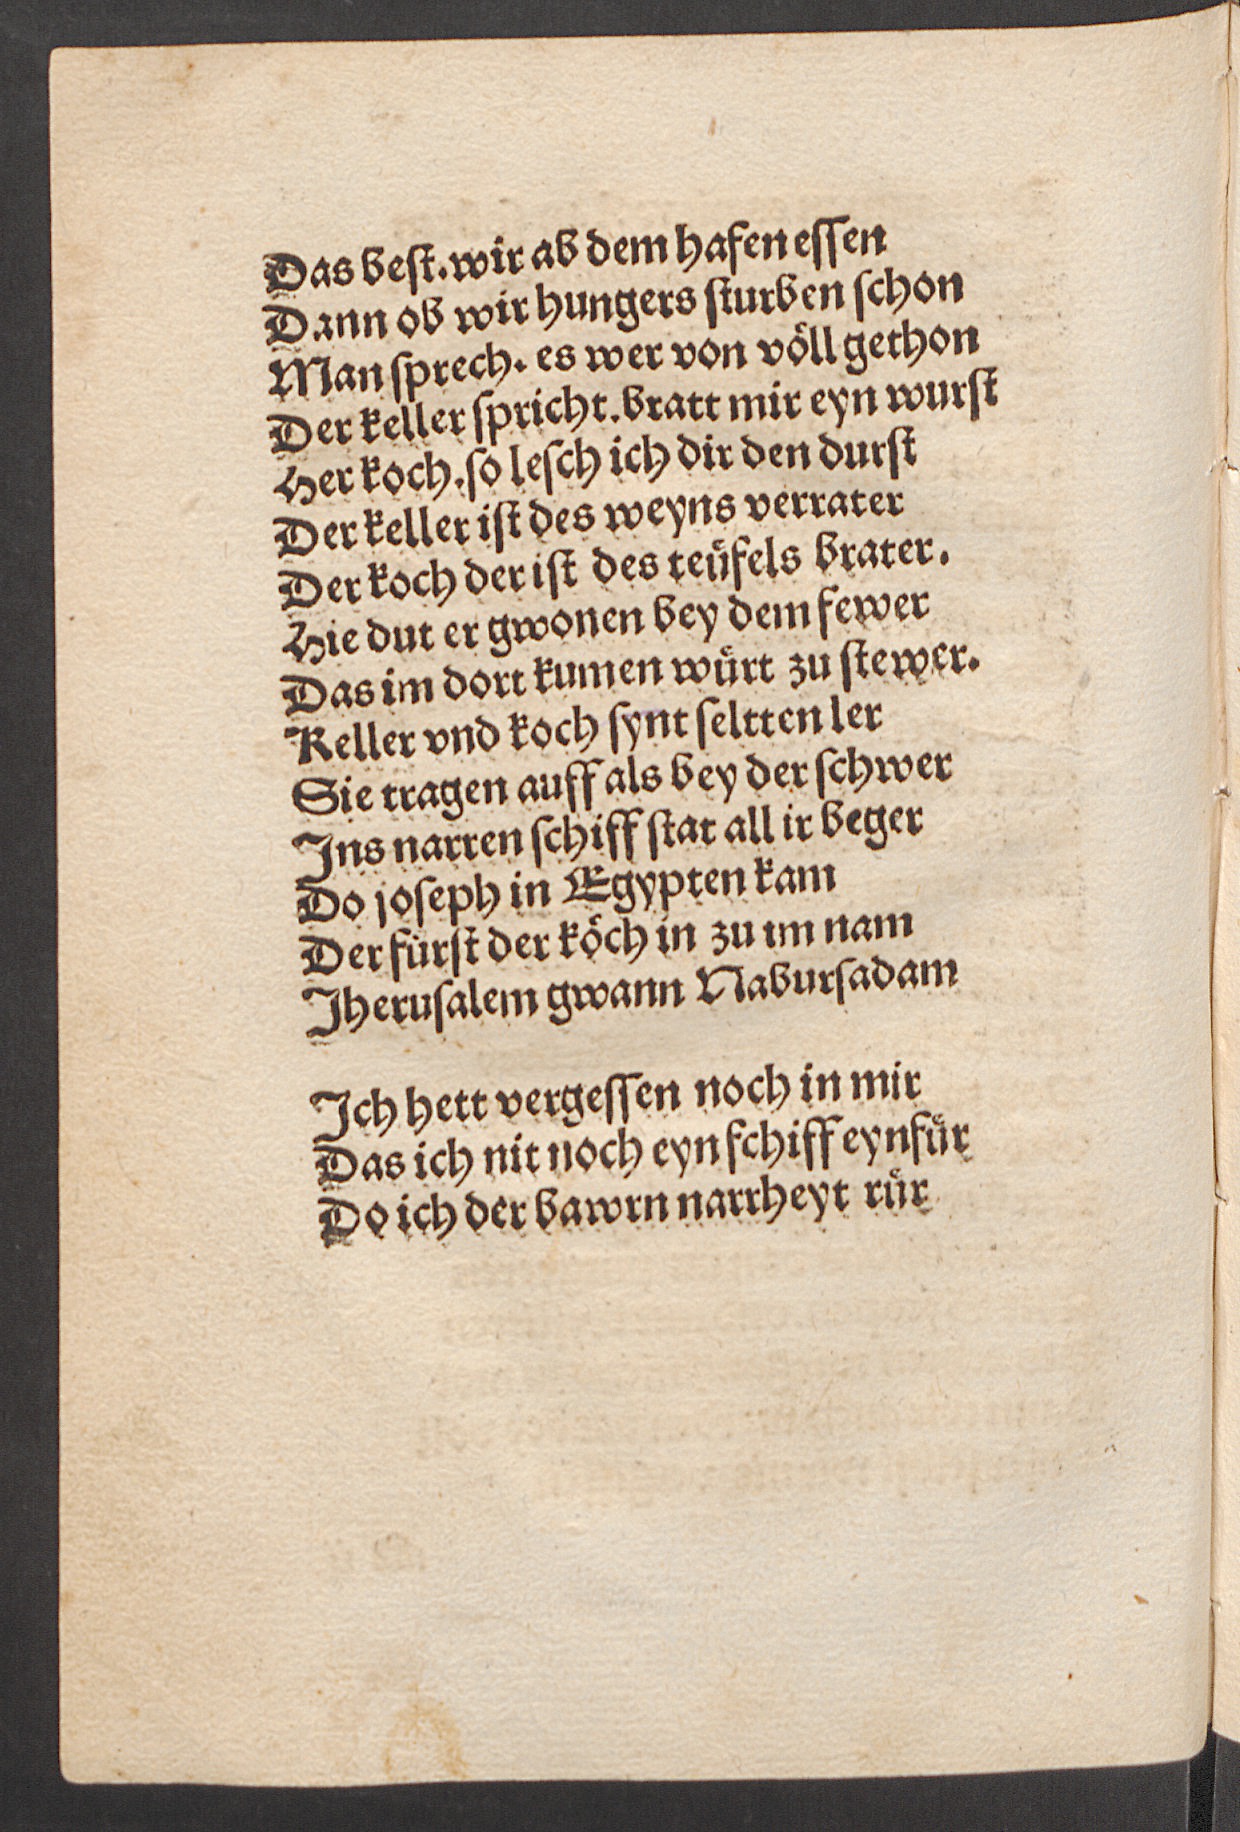 Das beſt. wir ab dem hafen eſſen
Dann ob wir hungers ſturben ſchon
Man ſprech. es wer von voͤll gethon
Der keller ſpricht. bratt mir eyn wurſt
Her koch. ſo leſch ich dir den durſt
Der keller iſt des weyns verrater
Der koch der iſt des teüfels brater.
Hie dut er gwonen bey dem fewer
Das im dort kumen würt zu ſtewer.
Keller vnd koch ſynt ſeltten ler
Sie tragen auff als bey der ſchwer
Jns narren ſchiff ſtat all ir beger
Do joſeph in Ægypten kam
Der fürſt der koͤch in zu im nam
Jheruſalem gwann Naburſadam

Jch hett vergeſſen noch in mir
Das ich nit noch eyn ſchiff eynfuͤr
Do ich der bawrn narrheyt ruͤr